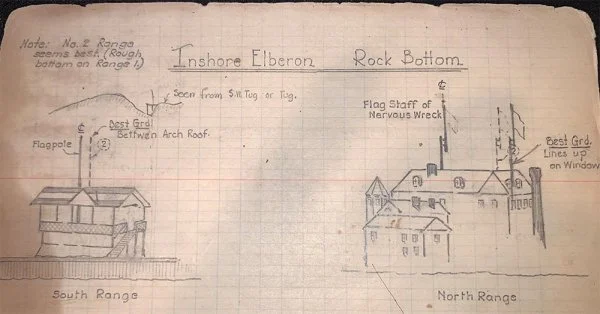 Note: No. 2 Range
seems best. (Rough
bottom on Range 1.)
Inshore Elberon Rock Bottom
Seen from S.W. Tug or Tug.
Best Grd.
Bettwen Arch Roof.
Flagpole
2
Flag Staff of
Nervous Wreck
Best Grd.
Lines up
on Window
2
South Range
North Range